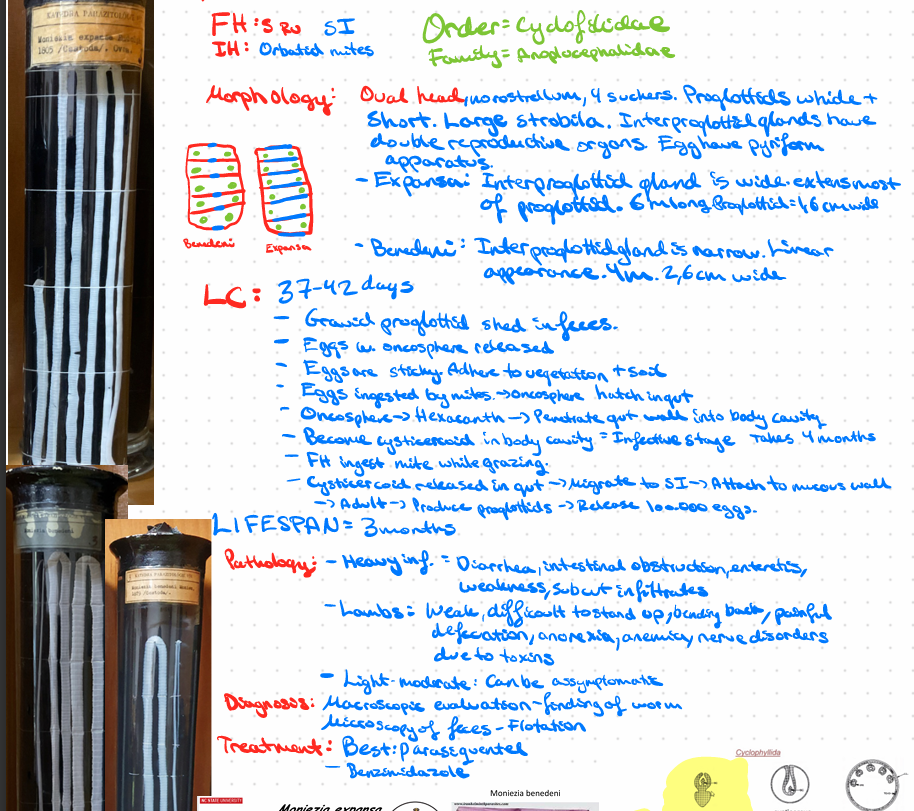 FH: S Ru SI
IH: Orbatid mites
Order= Cyclofilidae
Family= Anoplocephalidae
KATEDRA PARAZITOLO
Moniezia expansa
1905 /Cestoda/. Ovca.
Morphology: Oval head, no rostrellum, 4 suckers. Proglottids whide +
Short. Large strobila. Interproglottid glands have
double reproductive organs. Egg have pyriform
apparatus.
- Expansa: Interproglottid gland is wide. extens most
of proglottid. 6 m long Proglottid= 1,6 cm wide
Benedeni
Expansa
- Benedeni: Interproglottid gland is narrow. Linear
appearance. 4m. 2,6 cm wide
LC: 37-42 days
- Gravid proglottid shed in feces.
- Eggs w. oncosphere released
- Eggs are sticky. Adhere to vegetation + soil
- Eggs ingested by mites. → oncosphere hatch in gut
- Oncosphere → Hexacanth → Penetrate gut wall into body cavity
- Become cysticercoid in body cavity = Infective stage Takes 4 months
- FH ingest mite while grazing.
- Cysticercoid released in gut → Migrate to SI → Attach to mucous wall
→ Adult → Produce proglottids → Release 100.000 eggs.
LIFESPAN = 3 months
Pathology: - Heavy inf. = Diarrhea, intestinal obstruction, enteretis,
weakness, subcut infiltrates
- Lambs = Weak, difficult to stand up, bending back, painful
defecation, anorexia, anemia, nerve disorders
due to toxins
- Light-moderate: Can be assymptomatic
Diagnosis: Macroscopic evaluation - finding of worm
Microscopy of feces - Flotation
Treatment: Best: parasiquentel
- Benzimidazole
KATEDRA PARAZITOLOGIE
Moniezia benedeni
Cyclophyllida
NC STATE UNIVERSITY
Moniezia benedeni
Moniezia expansa